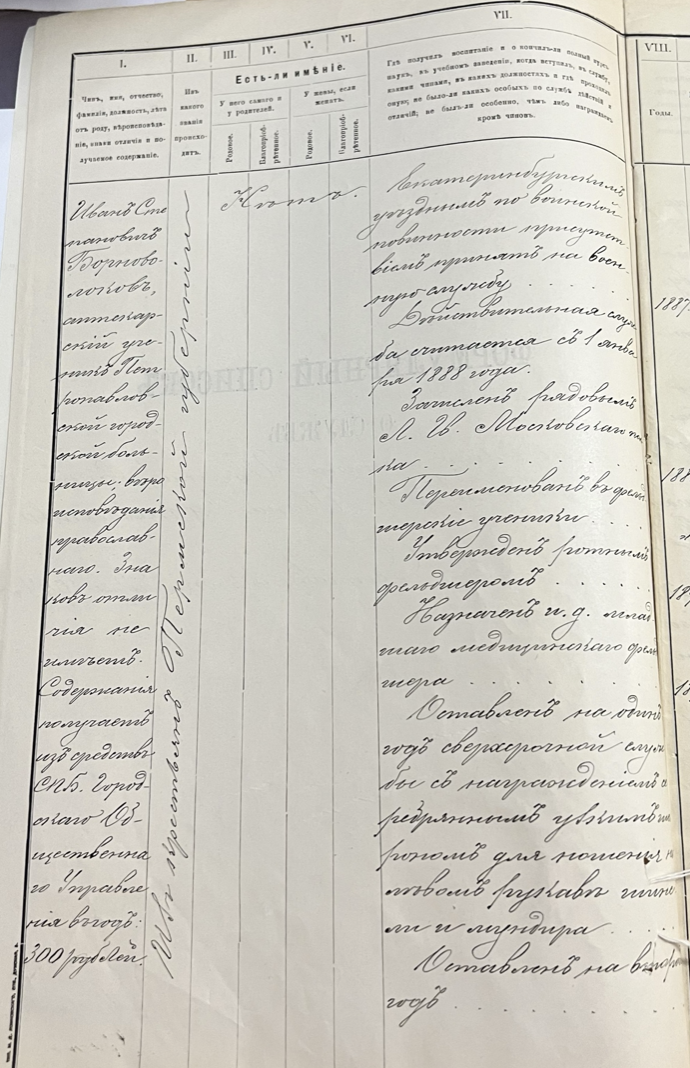 I.
II.
III.
IV.
V.
VI.
VII.
VIII.
Чинъ, имя, отчество,
фамилія, должность, лѣта
отъ роду, вѣроисповѣда-
нія, знаки отличія и по-
лучаемое содержаніе.
Изъ
какого
званія
происхо-
дитъ.
Есть-ли имѣніе.
У него самого и
у родителей.
У жены, если
женатъ.
Родовое.
Благопріоб-
рѣтенное.
Родовое.
Благопріоб-
рѣтенное.
Гдѣ получилъ воспитаніе и окончилъ-ли полный курсъ
наукъ, въ учебномъ заведеніи, когда вступилъ въ службу,
какими чинами, въ какихъ должностяхъ и гдѣ проходилъ
оную; не было-ли какихъ особыхъ по службѣ дѣйствій и
отличій; не былъ-ли особенно, чѣмъ либо награжденъ
кромѣ чиновъ.
Годы.
Иванъ Сте
пановичъ
Борново-
локовъ,
аптекар-
скій уче-
никъ Пет
ропавлов-
ской город-
ской боль-
ницы. вѣро
исповѣданія
православ-
наго. Зна
ковъ отли
чія не
имѣетъ.
Содержанія
получаетъ
изъ средствъ
СПБ. Город-
скаго Об-
щественна
го Управле
нія въ годъ:
300 рублей.
Изъ крестьянъ Пермской губерніи
Нѣтъ.
Екатеринбургскимъ
уѣзднымъ по воинской
повинности присутст
віемъ принятъ на воен
ную службу . . . . .
1887
Дѣйствительная служ
ба считается съ 1 янва-
ря 1888 года.
Зачисленъ рядовымъ
Л. Гв. Московскаго пол
ка . . . . . .
188
Переименованъ въ фельд
шерскіе ученики . . . .
Утвержденъ ротнымъ
фельдшеромъ . . . . .
Назначенъ и. д. млад
шаго медицинскаго фельд
шера . . . . . .
Оставленъ на одинъ
годъ сверхсрочной служ
бы съ награжденіемъ с
ребряннымъ узкимъ ше
врономъ для ношенія на
лѣвомъ рукавѣ шине
ли и мундира . . . .
Оставленъ на второй
годъ . . . . . . .